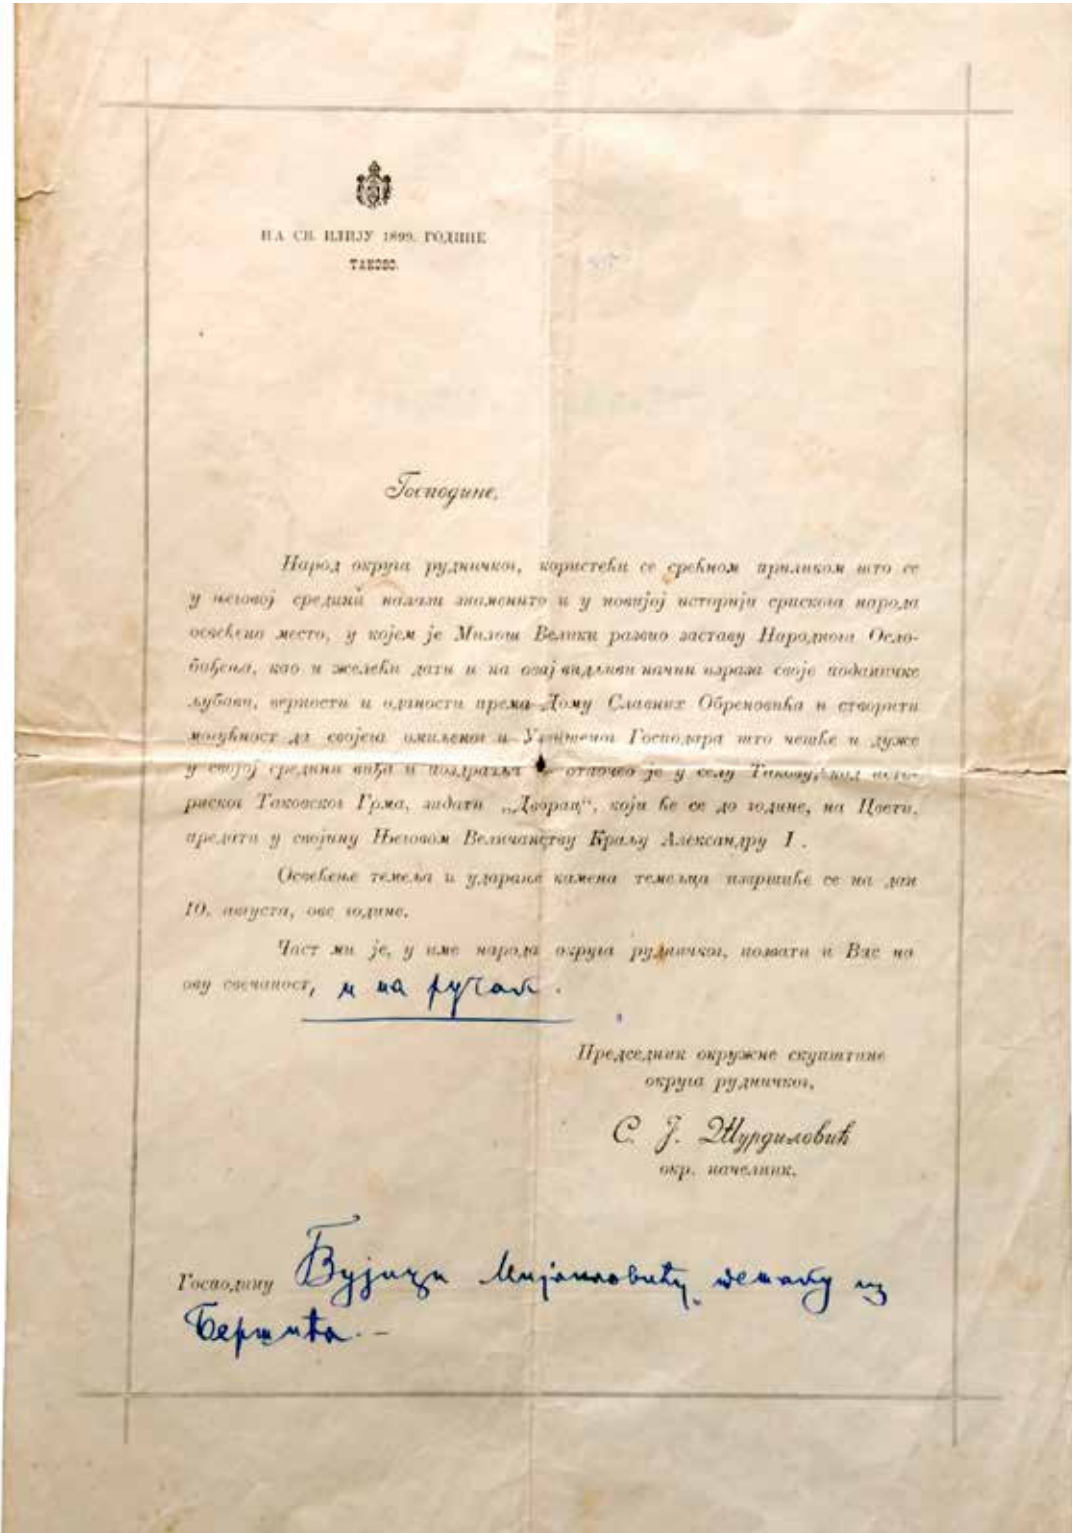 НА СВ. ИЛИЈУ 1899. ГОДИНЕ
ТАКОВО.
Господине,
Народ округа рудничког, користећи се срећном приликом што се
у његовој средини налази знаменито и у новијој историји српскога народа
освећено место, у којем је Милош Велики развио заставу Народнога Осло-
бођења, као и желећи дати и на овај видљиви начин израза своје поданичке
љубави, верности и оданости према Дому Славних Обреновића и створити
могућност да својега омиљеног и Узвишеног Господара што чешће и дуже
у својој средини виђа и поздравља — отпочео је у селу Такову, код исто-
риског Таковског Грма, зидати „Дворац“, који ће се до године, на Цвети,
предати у својину Његовом Величанству Краљу Александру I.
Освећење темеља и ударање камена темељца извршиће се на дан
10. августа, ове године.
Част ми је, у име народа округа рудничког, позвати и Вас на
ову свечаност, и на ручак.
Председник окружне скупштине
округа рудничког,
С. Ј. Шурдиловић
окр. начелник.
Господину Вујици Мијаиловићу, из
Бершића. —